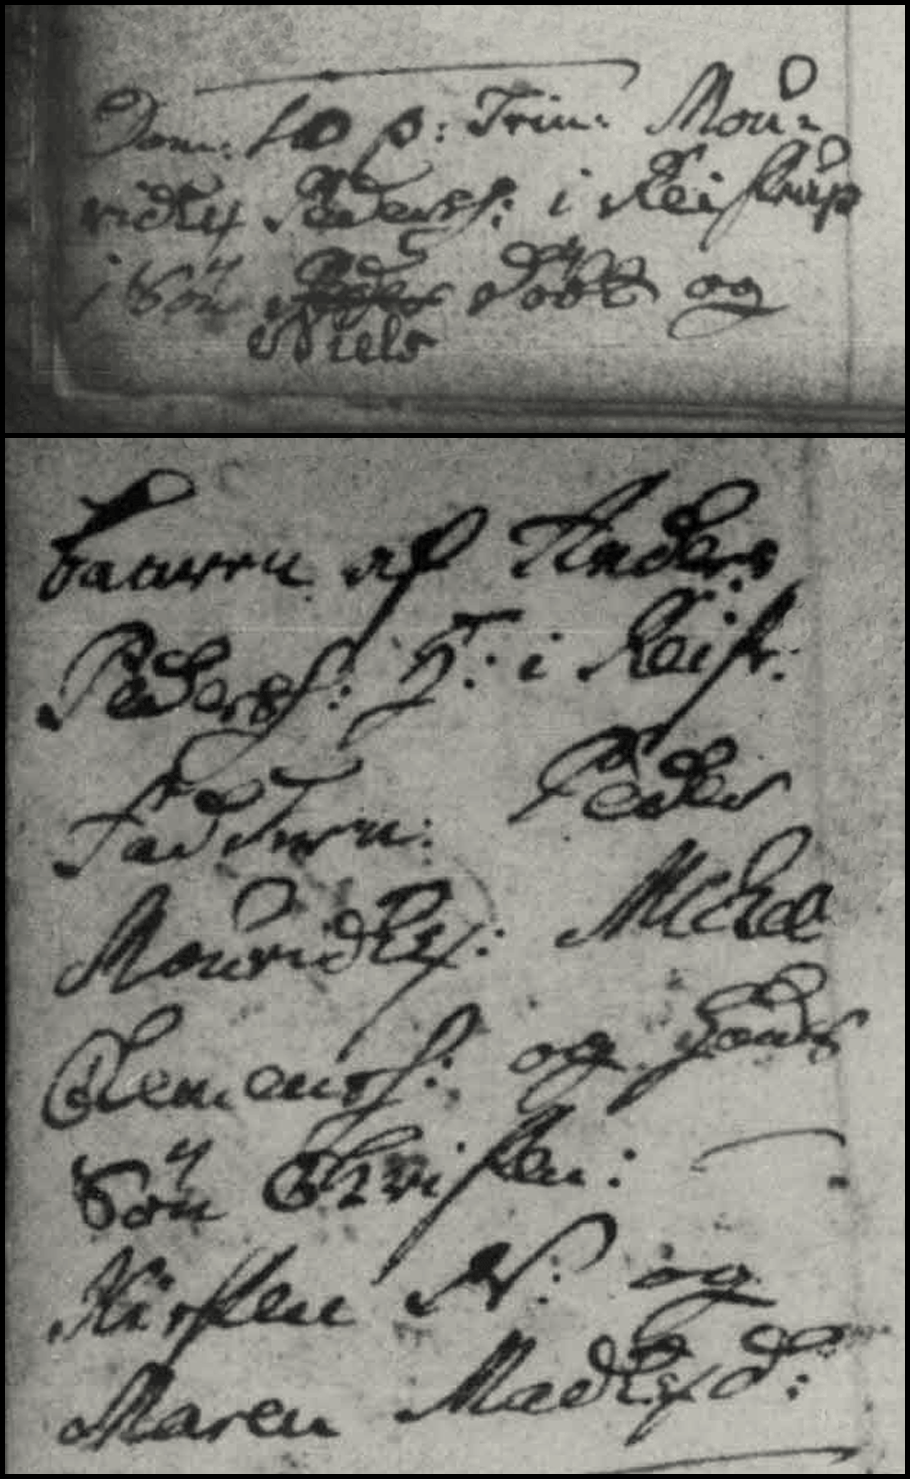 Dom: 10 p: Trin: Mou-
ridtz Pedersf: i Keistrup
i Søn Peder døbt og
Niels
baaren af Anders
Pedersf: H: i Keistr:
Fadderne: Peder
Mouridtzf: Mickel
Clemensf: og hands
Søn Christen:
Kirsten N: og
Maren Madtzd: